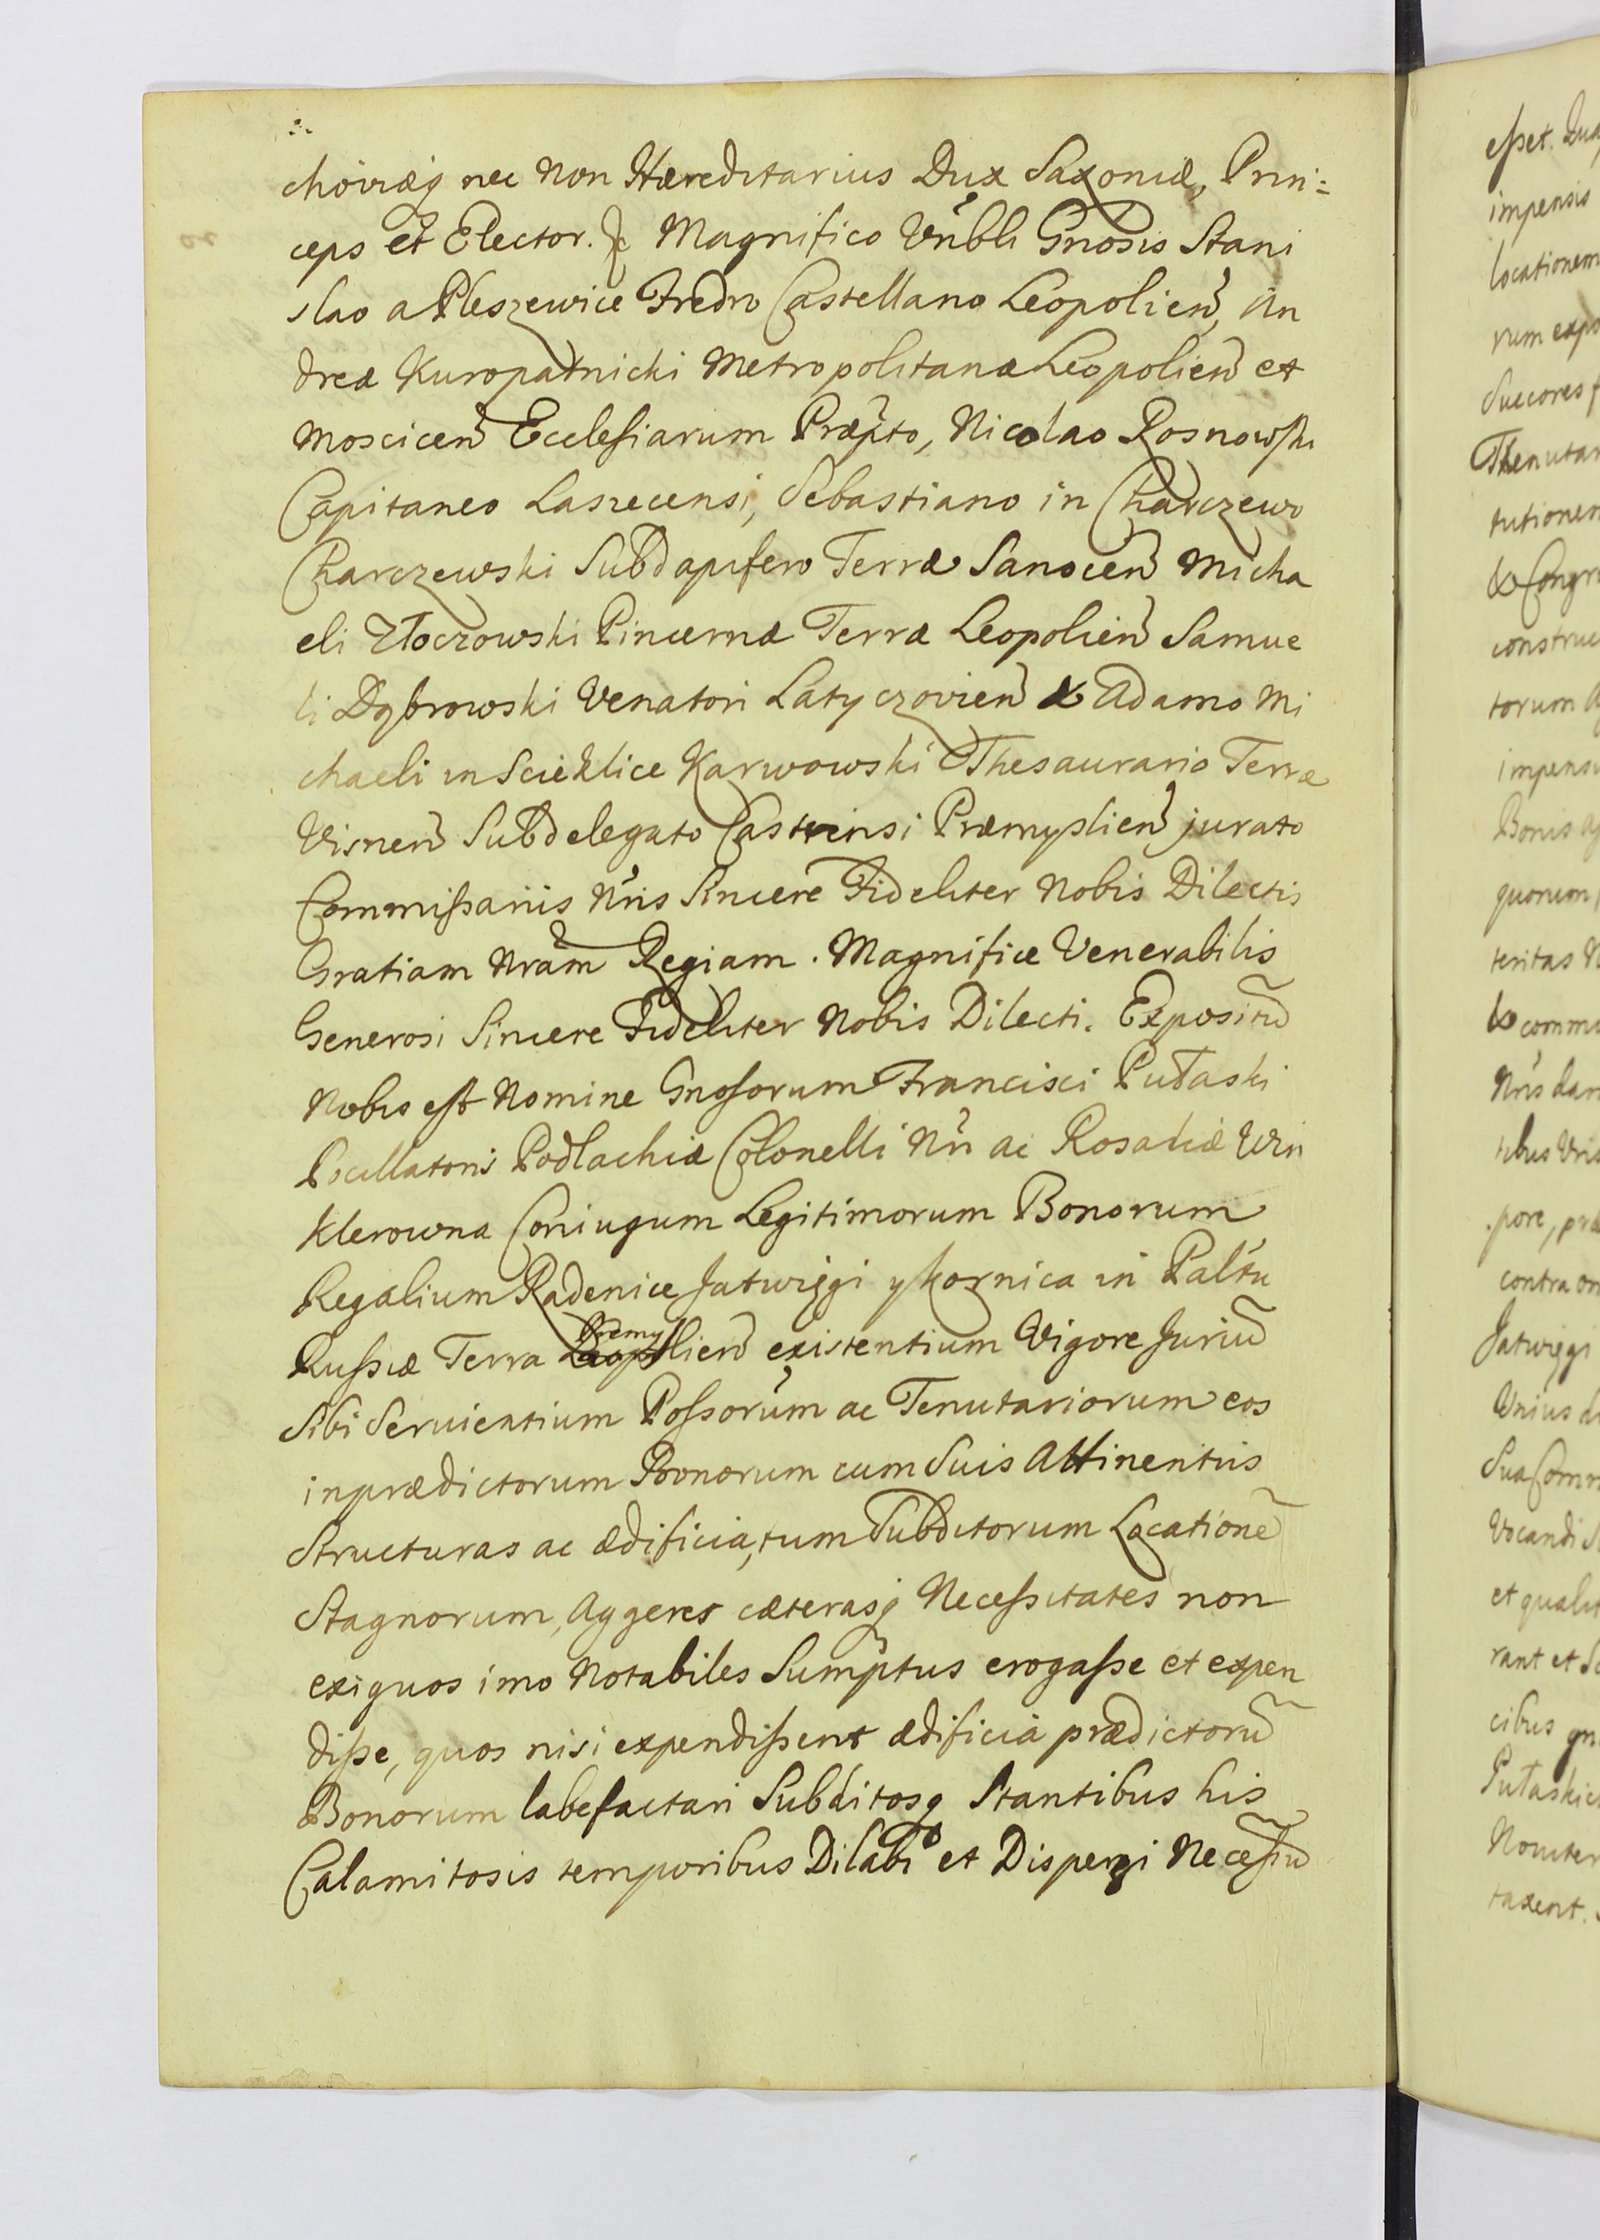 choviæq nec Non Hæreditarius Dux Saxoniæ, Prin=
ceps et Elector. &c Magnifico Vnbli Gnosis Stani
slao a Pleszewice Fredro Castellano Leopolien, An
dreæ Kuropatnicki Metropolitanæ Leopolien et
Moscicen Ecclesiarum Præpto, Nicolao Rosnowski
Capitaneo Laszecensi, Sebastiano in Charczewo
Charczewski Subdapifero Terræ Sanocen Micha
eli Złoczowski Pincernæ Terræ Leopolien Samue
li Dąbrowski Venatori Latyczovien & Adamo Mi
chaeli in Scieklice Karwowski Thesaurario Terræ
Visnen Subdelegato Castrensi Præmyslien jurato
Commissariis Nris Sincere Fideliter Nobis Dilectis
Gratiam Nram Regiam. Magnifice Venerabilis
Generosi Sincere Fideliter Nobis Dilecti. Expositũ
Nobis est Nomine Gnosorum Francisci Pułaski
Pocillatoris Podlachiæ Colonelli Nri ac Rosaliæ Win
klerowna Coniugum Legitimorum Bonorum
Regalium Radenice Jatwięgi y Kornica in Paltu
Russiæ Terra Premyslien existentium Vigore Juriũ
Sibi Seruientium Possorum ac Tenutariorum eos
in prædictorum Bonorum cum Suis Attinentiis
Structuras ac ædificia, tum Subditorum Locationẽ
Stagnorum, Aggeres cæterasq Necessitates non
exiguos imo Notabiles Sumptus erogasse et expen
disse, quos nisi expendissent ædificia prædictorũ
Bonorum labefactari Subditosq Stantibus his
Calamitosis temporibus Dilabi et Dispergi Necessũ
esset.
impensis
locationem
Thenutar
construc
torum
Bonis
quorum
contra
Jatwięgi
Vnius
Vocandi
rant et
cibus